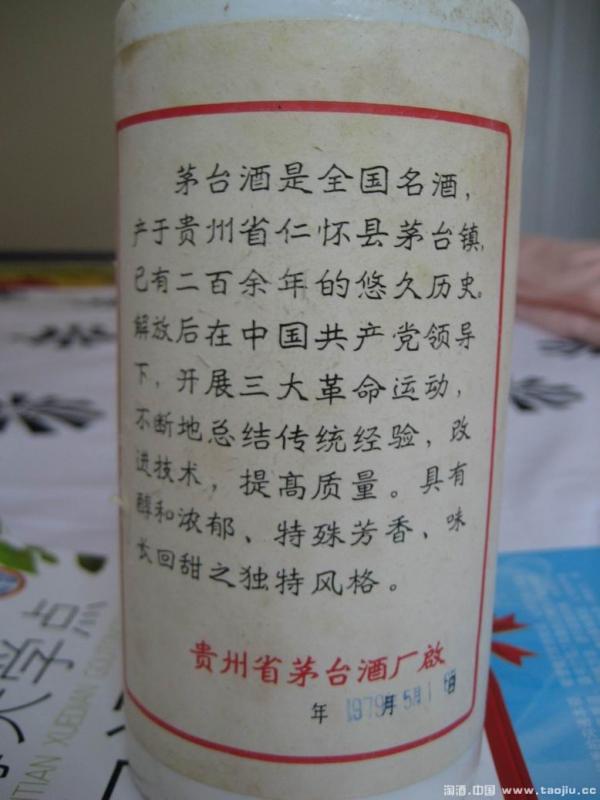 茅台酒是全国名酒，
产于贵州省仁怀县茅台镇，
已有二百余年的悠久历史。
解放后在中国共产党领导
下，开展三大革命运动，
不断地总结传统经验，改
进技术，提高质量。具有
醇和浓郁、特殊芳香、味
长回甜之独特风格。
贵州省茅台酒厂啟
年 1979年5月1 日
大学点
ITIAN XUEDIAN
淘酒.中国 www.taojiu.cc